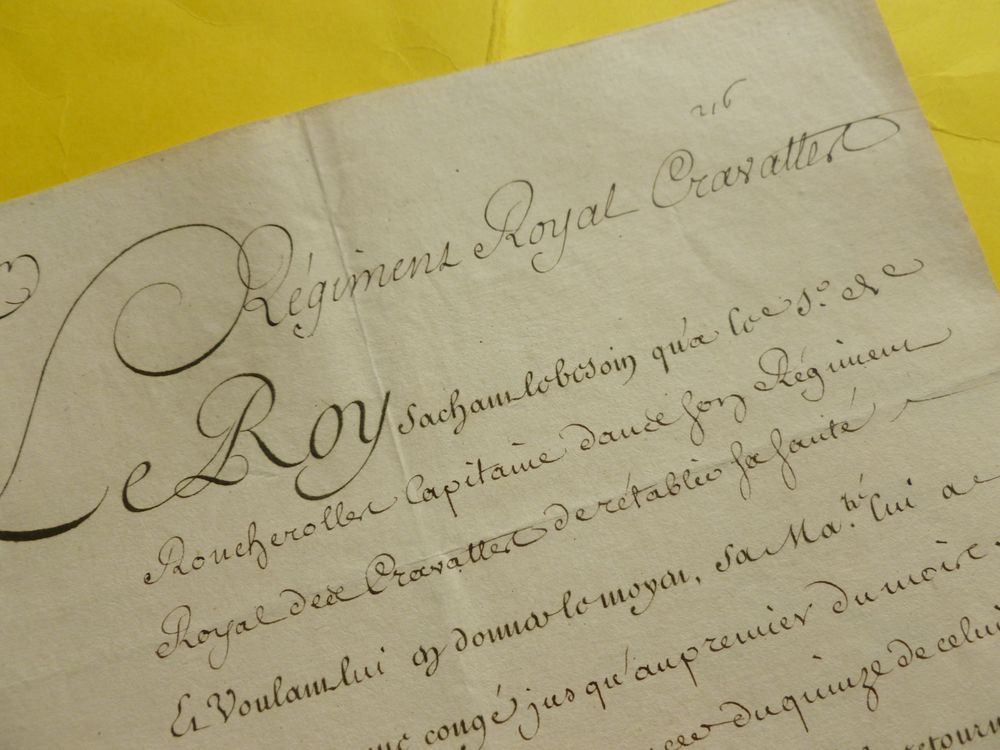 216
Régiment Royal Cravattes
Le Roy sachant le besoin qu'a le S.r de
Roucherolles Capitaine dans son Régiment
Royal des Cravattes de rétablir sa santé
Et Voulant lui en donner le moyen, Sa Ma.té lui a
congé jusqu'au premier du mois
du quinze de celui
retourn